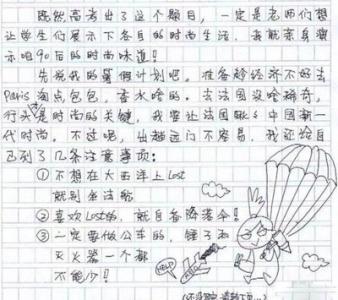 既然高考出了这个题目，一定是老师们想
让学生们展示下各自的时尚生活，我就亲身演
示吧90后的时尚味道！
先说我的暑假计划吧。准备趁经济不好去
Paris 淘点包包，香水啥的。去法国没啥稀奇，
行头是时尚的关键，我要让法国瞅瞅中国新一
代时尚。不过呢，出趟远门不容易，我还给自
己列了几条注意事项：
① 不想在大西洋上Lost
就别坐法航
② 喜欢Lost的，就自备降落伞！
③ 一定要做公车的，锤子和
灭火器一个都
不能少！
HELP
(还没完，请翻下页...)